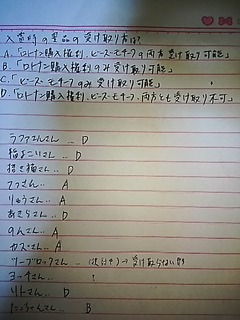 入賞時の景品の受け取り方は?
A.「ロトナン購入権利、ピースモチーフの両方受け取り可能」
B.「ロトナン購入権利のみ受け取り可能」
C.「ピースモチーフのみ受け取り可能」
D.「ロトナン購入権利、ピースモチーフ、両方とも受け取り不可」
ラファエルさん… D
猫よこいさん… D
招き猫さん… D
てつさん… A
りゅうさん… A
あきらさん… D
9んさん… A
カズさん… A
ツーブロックさん… → 受け取らない
ヨッチさん… ?
リトさん… D
さん… B